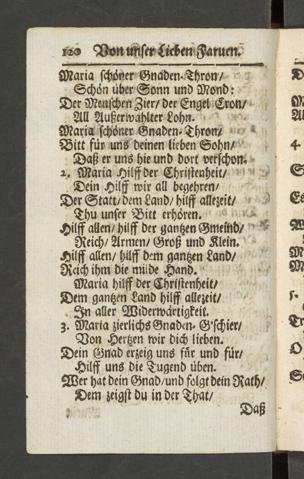 120 Von unser Lieben Faruen.
Maria schöner Gnaden-Thron/
Schön über Sonn und Mond:
Der Menschen Zier/ der Engel Cron/
All Außerwählter Lohn.
Maria schöner Gnaden-Thron/
Bitt für uns deinen lieben Sohn/
Daß er uns hie und dort verschon.
2. Maria Hilff der Christenheit/
Dein Hilff wir all begehren/
Der Statt/ dem Land/ hilff allezeit/
Thu unser Bitt erhören.
Hilff allen/ hilff der gantzen Gmeind/
Reich/ Armen/ Groß und Klein.
Hilff allen/ hilff dem gantzen Land/
Reich ihm die milde Hand.
Maria hilff der Christenheit/
Dem gantzen Land hilff allezeit/
In aller Widerwärtigkeit.
3. Maria zierlichs Gnaden-G'schier/
Von Hertzen wir dich lieben.
Dein Gnad erzeig uns für und für/
Hilff uns die Tugend üben.
Wer hat dein Gnad/ und folgt dein Rath/
Dem zeigst du in der That/
Daß